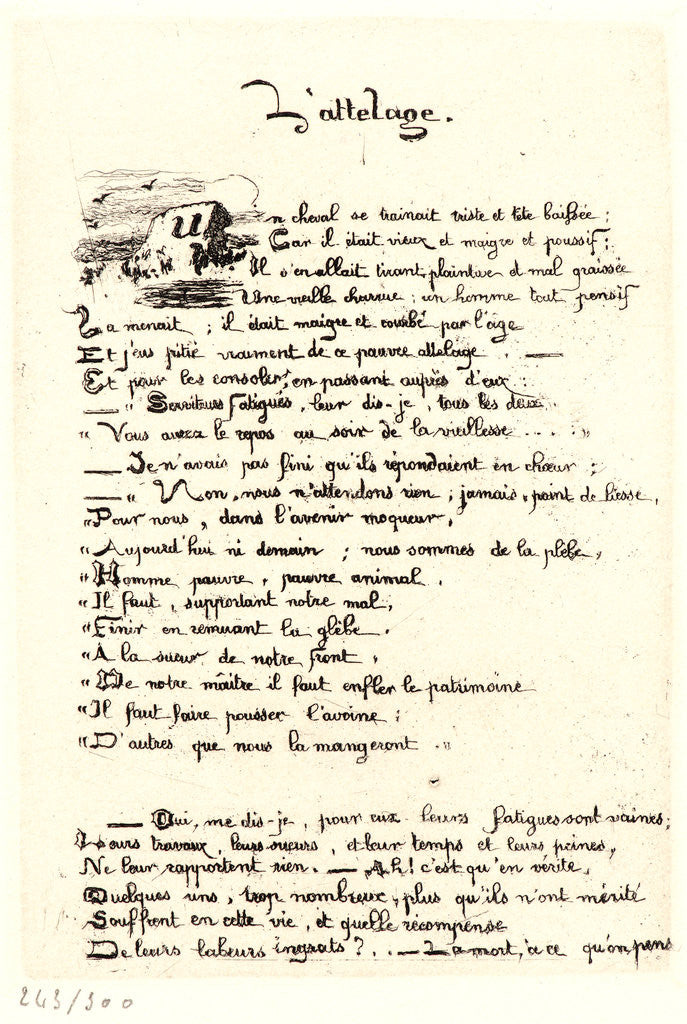 L'attelage.
Un cheval se trainait triste et tête baissée ;
Car il était vieux et maigre et poussif ;
Il s'en allait tirant, plaintive et mal graissée
Une vieille charrue ; un homme tout pensif
La menait ; il était maigre et courbé par l'âge
Et j'eus pitié vraiment de ce pauvre attelage . —
Et pour les consoler, en passant auprès d'eux :
— " Serviteurs fatigués, leur dis-je, tous les deux
" Vous aurez le repos au soir de la vieillesse .... "
— Je n'avais pas fini qu'ils répondaient en chœur ;
— " Non, nous n'attendons rien ; jamais, point de liesse,
" Pour nous, dans l'avenir moqueur,
" Aujourd'hui ni demain ; nous sommes de la plèbe,
" Homme pauvre, pauvre animal,
" Il faut, supportant notre mal,
" Finir en remuant la glèbe.
" À la sueur de notre front,
" De notre maître il faut enfler le patrimoine
" Il faut faire pousser l'avoine ;
" D'autres que nous la mangeront . "
— Oui, me dis-je, pour eux leurs fatigues sont vaines ;
Leurs travaux, leurs sueurs, et leur temps et leurs peines,
Ne leur rapportent rien. — Ah! c'est qu'en vérité,
Quelques uns, trop nombreux, plus qu'ils n'ont mérité
Souffrent en cette vie, et quelle récompense
De leurs labeurs ingrats ? .. — La mort, à ce qu'on pens
243/300